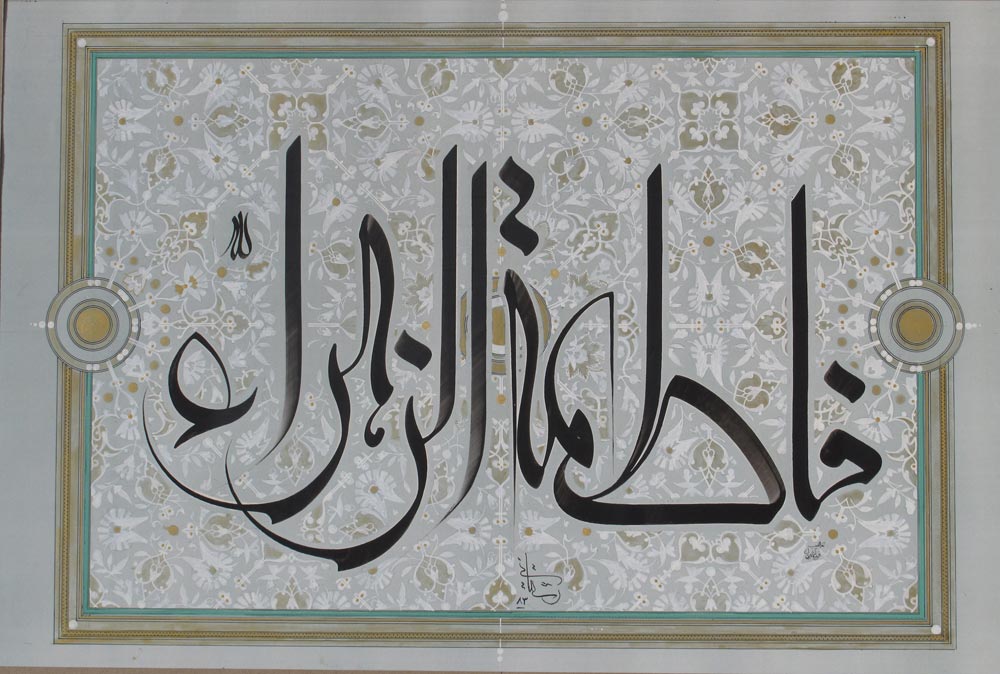 فاطمة الزهراء
لله
۸۳